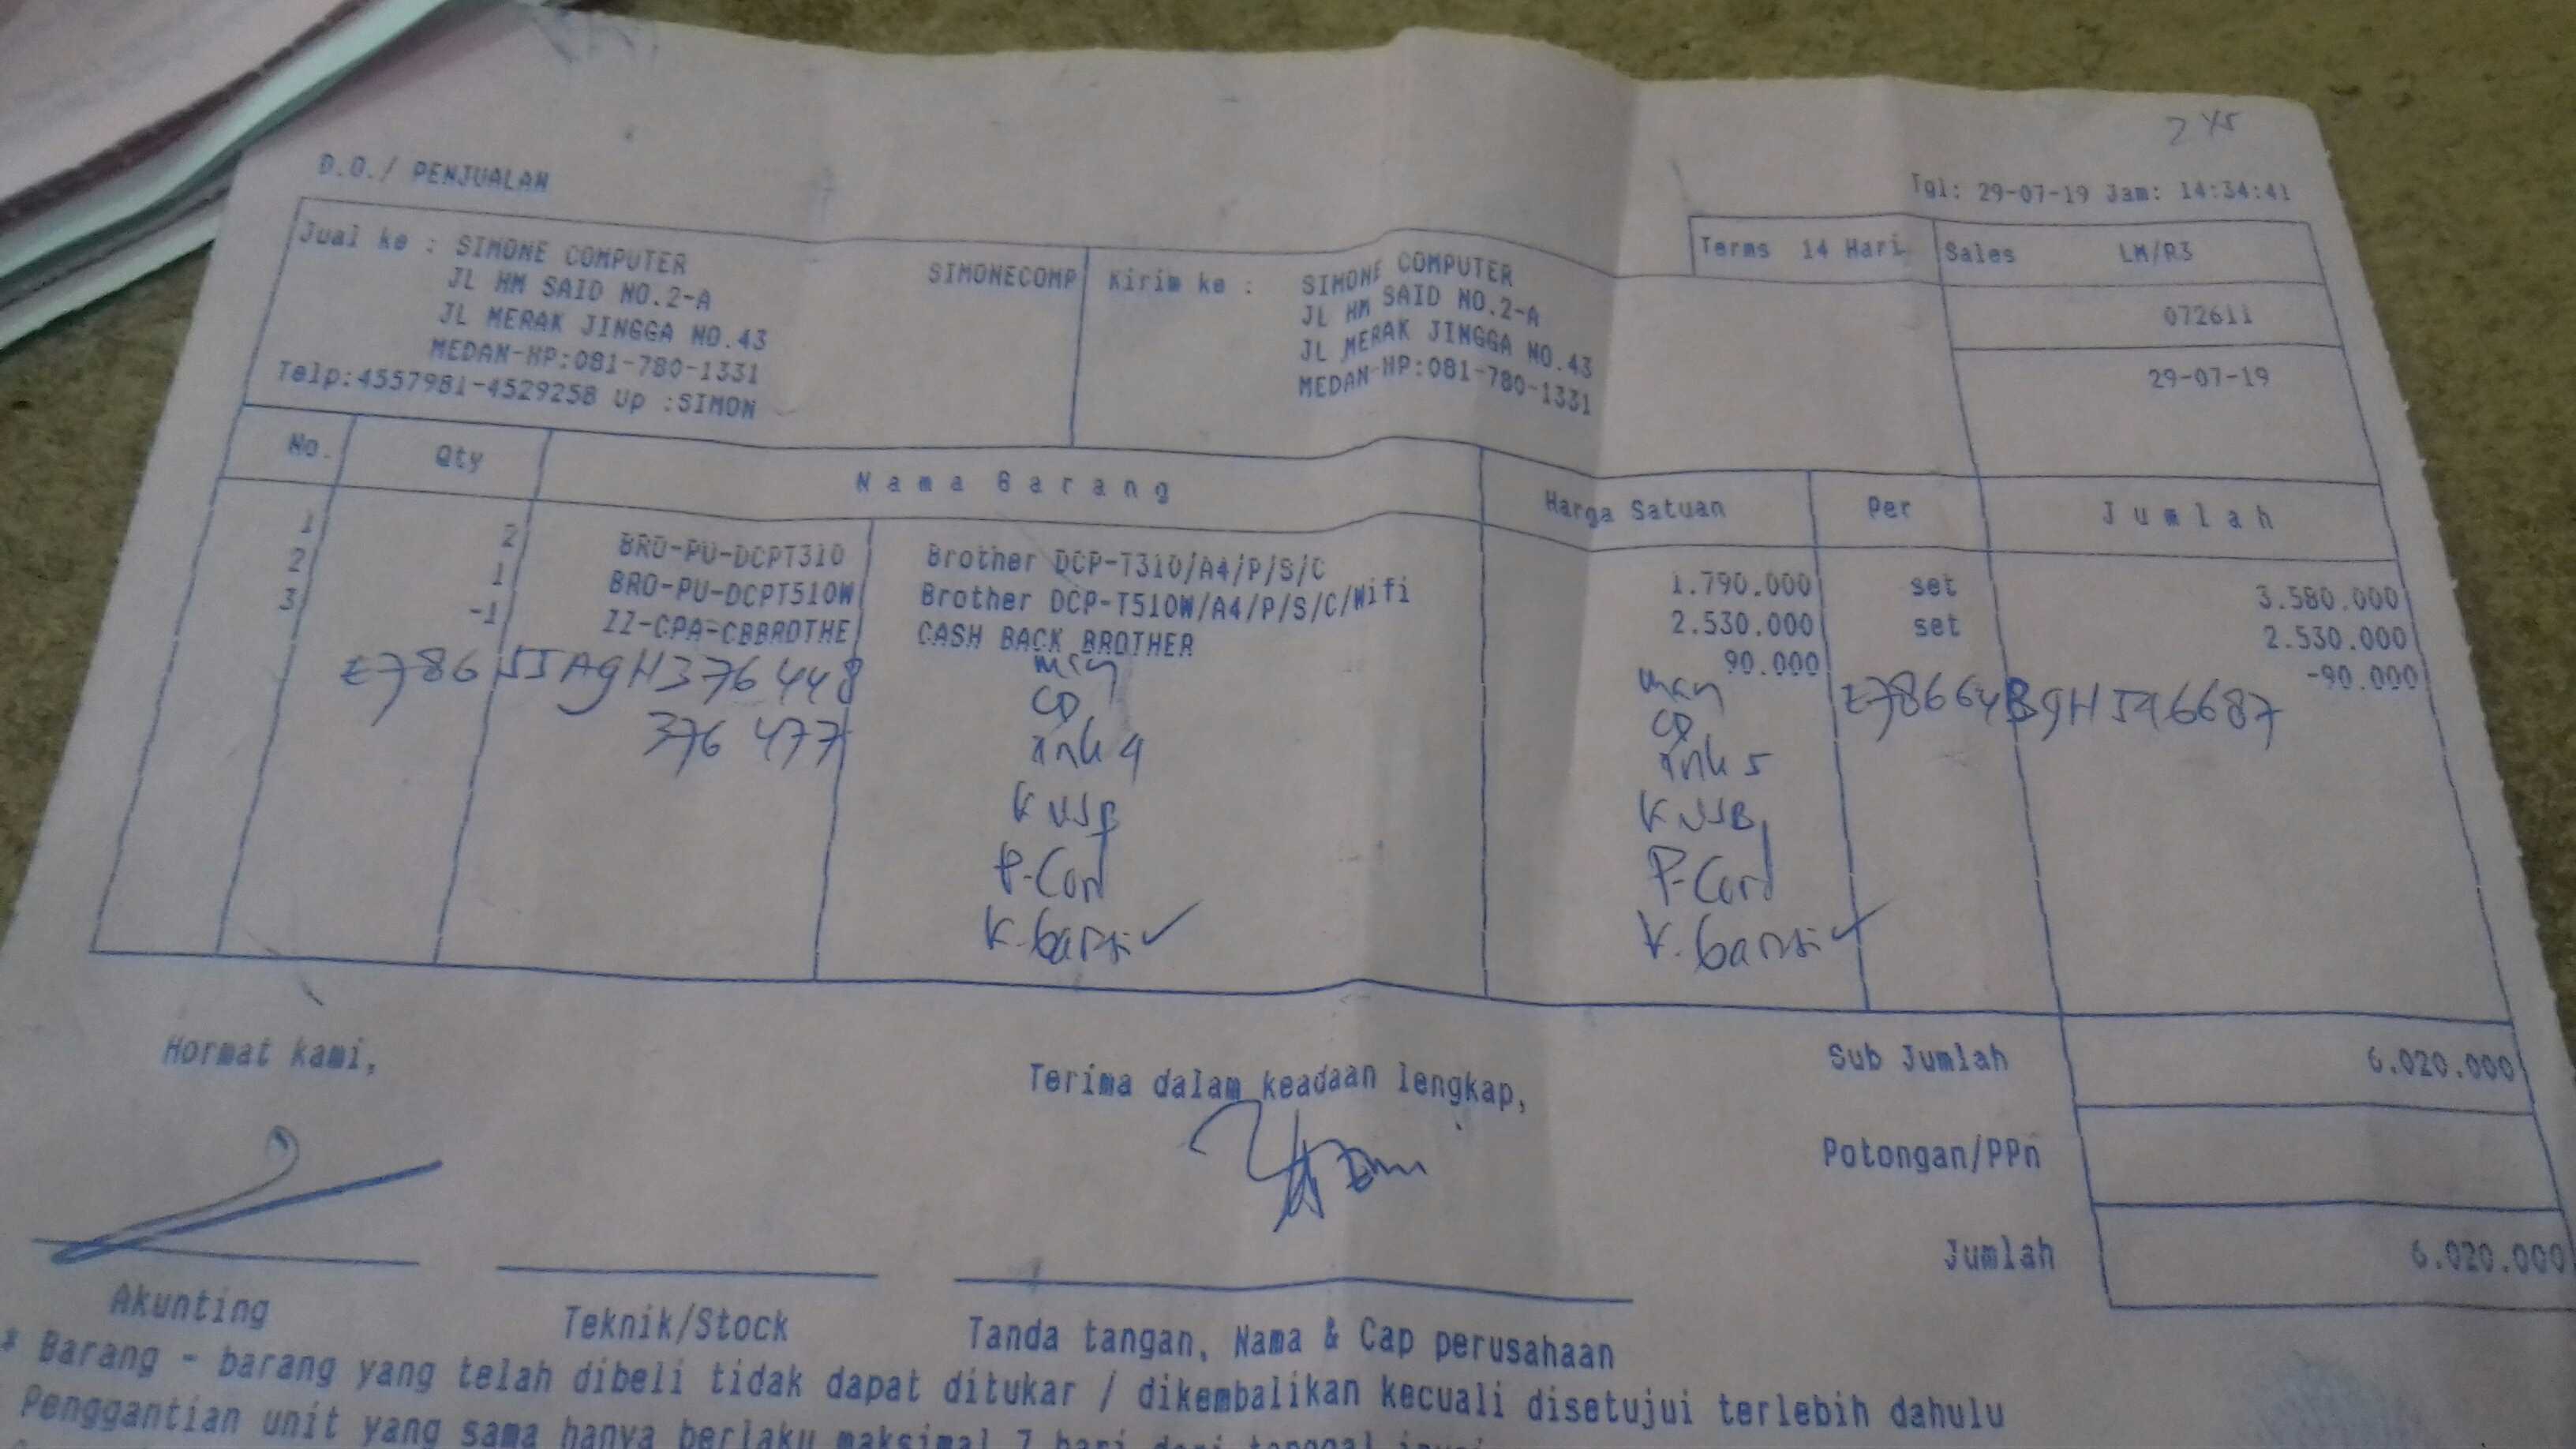 D.O./ PENJUALAN
Tgl: 29-07-19 Jam: 14:34:41
Jual ke : SIMONE COMPUTER SIMONECOMP
JL HM SAID NO.2-A
JL MERAK JINGGA NO.43
MEDAN-HP:081-780-1331
Telp:4557981-4529258 Up :SIMON
Kirim ke : SIMONE COMPUTER
JL HM SAID NO.2-A
JL MERAK JINGGA NO.43
MEDAN-HP:081-780-1331
Terms 14 Hari Sales LM/R3
072611
29-07-19
No. Qty Nama Barang Harga Satuan Per Jumlah
1 2 BRO-PU-DCPT310 Brother DCP-T310/A4/P/S/C 1.790.000 set 3.580.000
2 1 BRO-PU-DCPT510W Brother DCP-T510W/A4/P/S/C/Wifi 2.530.000 set 2.530.000
3 -1 ZZ-CPA-CBBROTHE CASH BACK BROTHER 90.000 -90.000
376 477
CD CD
ink 4 ink 5
K USB K USB
P-Cord P-Cord
Hormat kami,
Terima dalam keadaan lengkap,
Sub Jumlah 6.020.000
Potongan/PPn
Jumlah 6.020.000
Akunting Teknik/Stock Tanda tangan, Nama & Cap perusahaan
* Barang - barang yang telah dibeli tidak dapat ditukar / dikembalikan kecuali disetujui terlebih dahulu
Penggantian unit yang sama hanya berlaku maksimal 7 hari dari tanggal